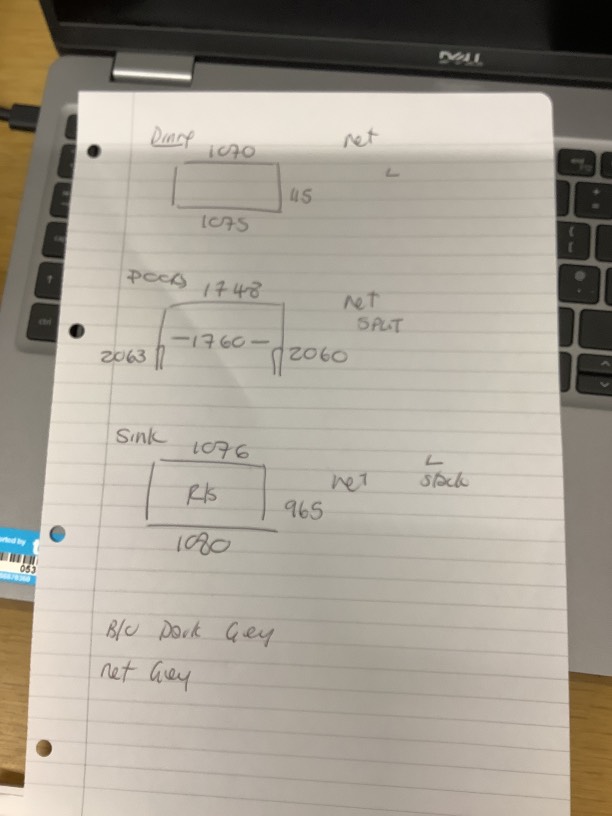 DELL
net
1070
L
115
1075
1748
net
SPLIT
-1760-
2063
2060
Sink
1076
L
R/s
net
stack
965
1080
B/C Dark Grey
net Grey
ctrl
053